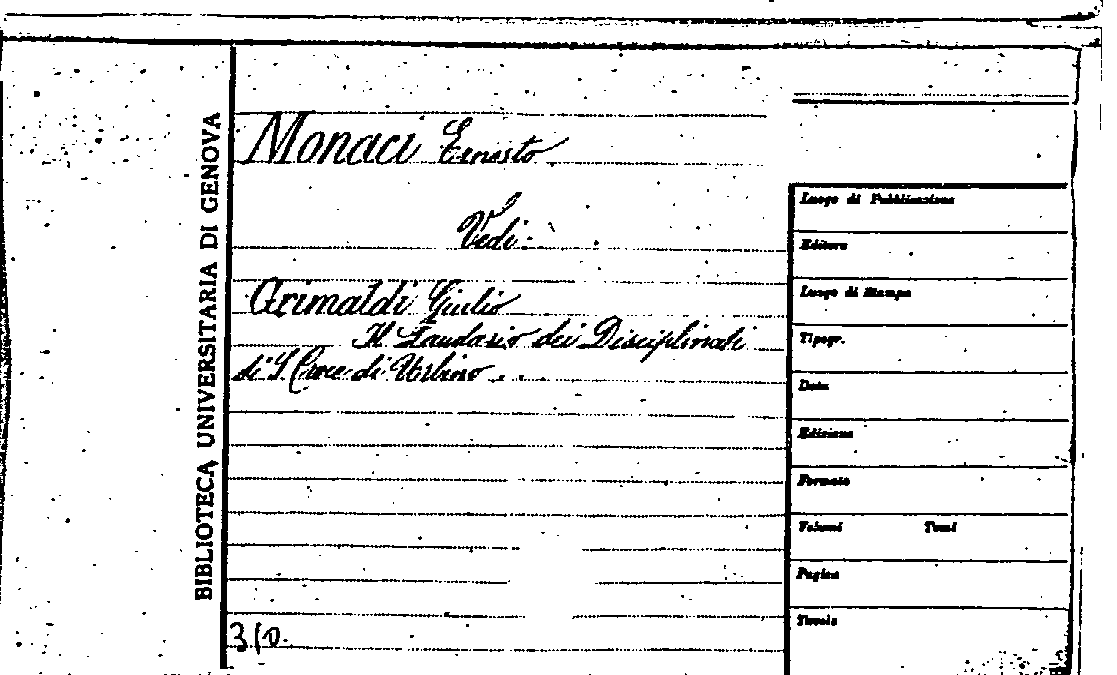 BIBLIOTECA UNIVERSITARIA DI GENOVA
Monaci Ernesto
Vedi:
Grimaldi Giulio
Il Laudario dei Disciplinati
di S. Croce di Urbino . .
Luogo di Pubblicazione
Editore
Luogo di Stampa
Tipogr.
Data
Edizione
Formato
Volumi Tomi
Pagine
Tavole